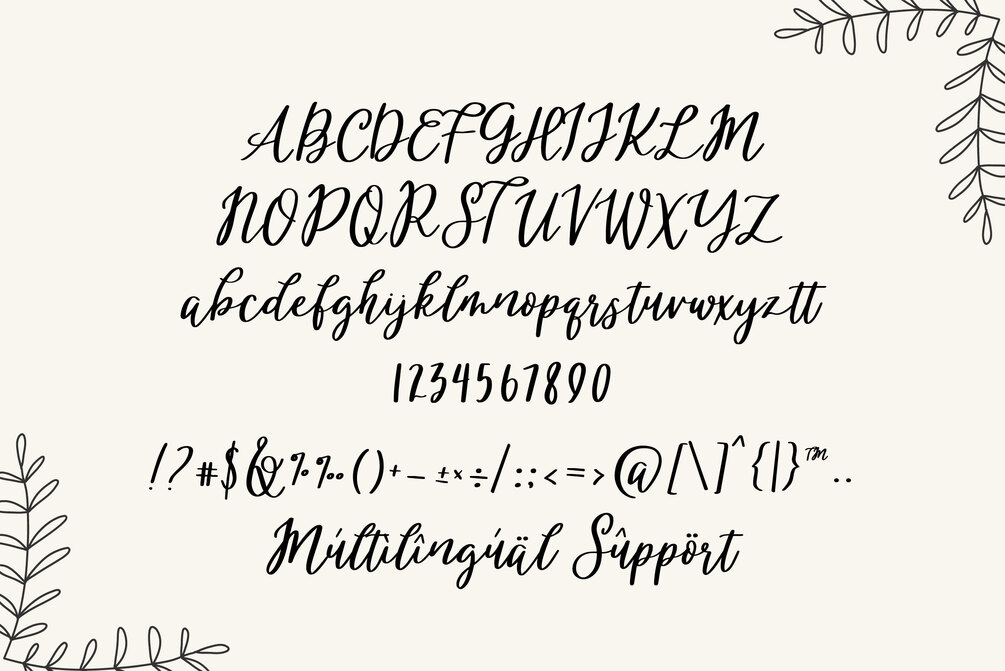 ABCDEFGHIJKLM
NOPQRSTUVWXYZ
abcdefghijklmnopqrstuvwxyztt
1234567890
!?#$&%‰()+–±×÷/:;<=>@[\]^{|}™..
Múltìlîngúäl Sûppört